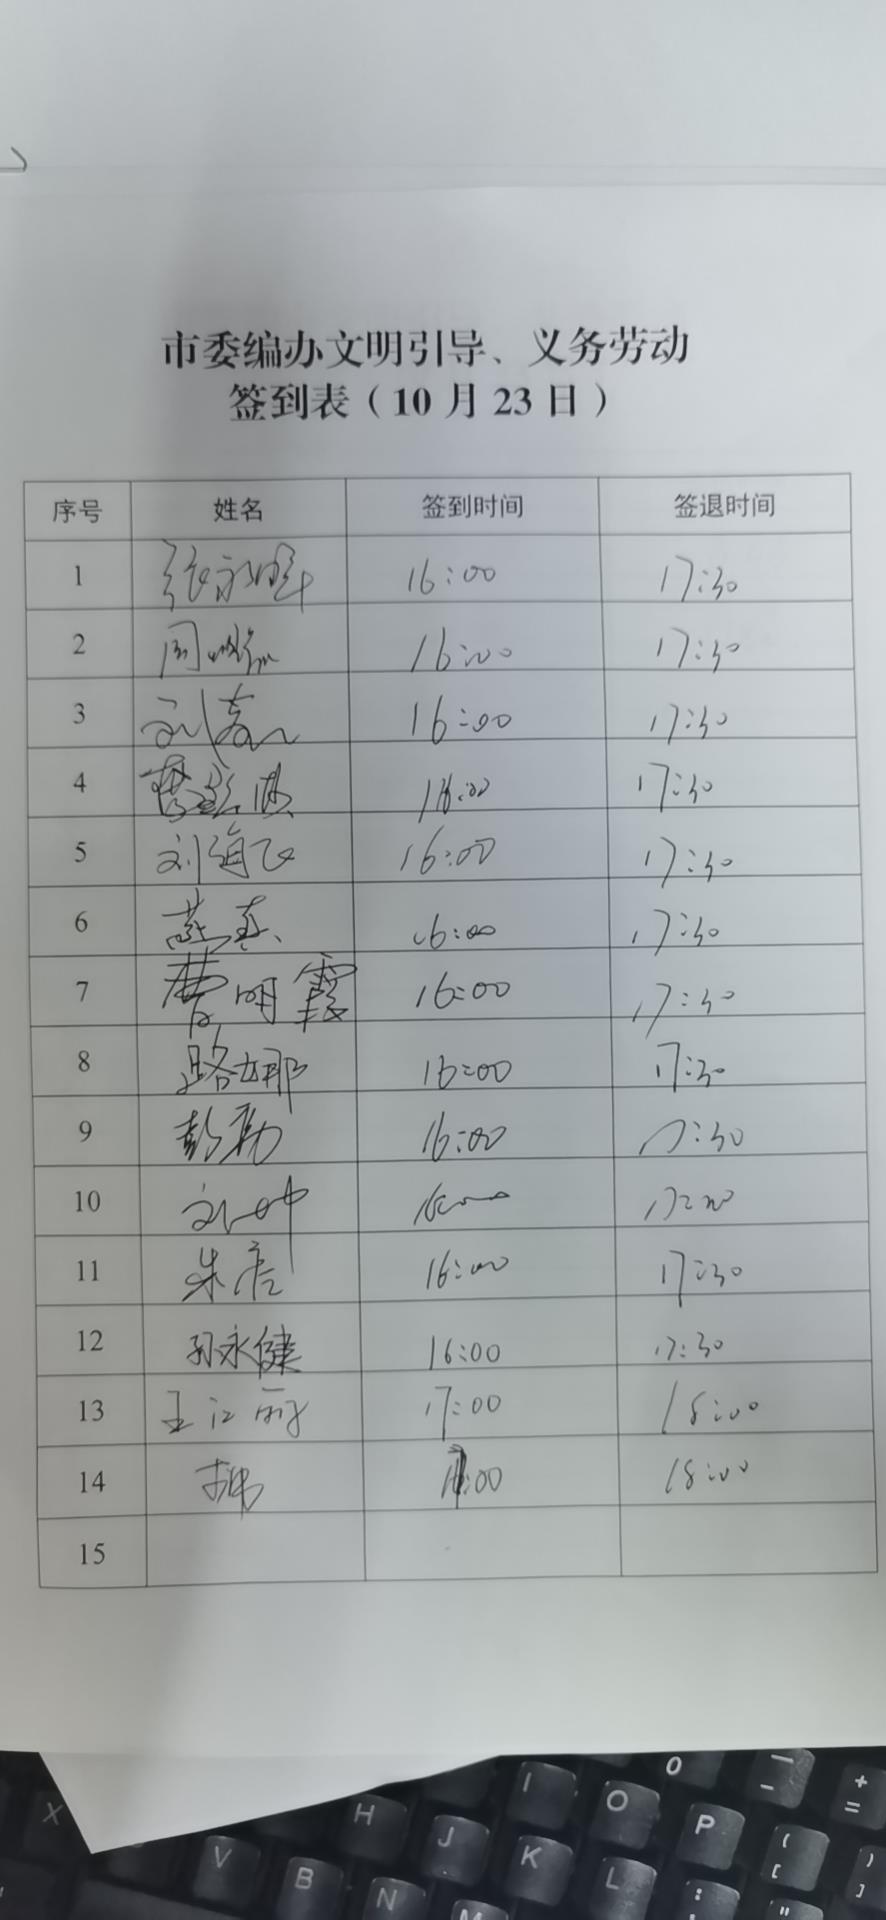 市委编办文明引导、义务劳动
签到表（10月23日）
序号 姓名 签到时间 签退时间
1 张永晖 16:00 17:30
2 周 16:00 17:30
3 刘 16:00 17:30
4 16:00 17:30
5 刘海飞 16:00 17:30
6 燕真 16:00 17:30
7 曹明霞 16:00 17:30
8 路娜 16:00 17:30
9 彭勃 16:00 17:30
10 刘 16:00 17:30
11 朱 16:00 17:30
12 孙永健 16:00 17:30
13 王江丽 17:00 18:00
14 :00 18:00
15
X
V
B
H
N
J
M
I
K
O
L
P
0